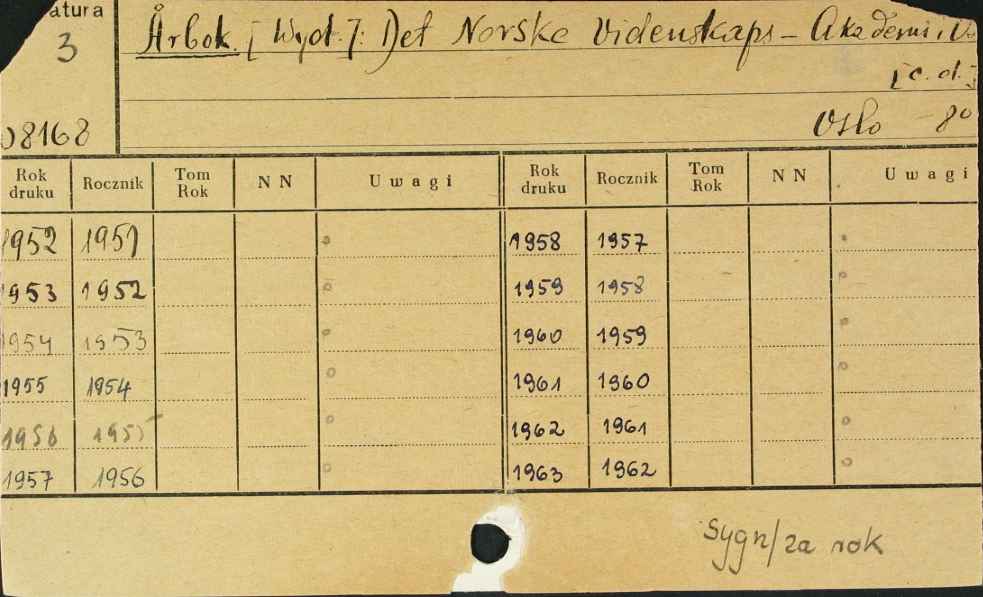 atura
3
Årbok. [Wyd.]: Det Norske Videnskaps - Akademi i
[c. d.]
Oslo 8°
08168
Rok druku Rocznik Tom Rok NN Uwagi Rok druku Rocznik Tom Rok NN Uwagi
1952 1951 1958 1957
1953 1952 1959 1958
1954 1953 1960 1959
1955 1954 1961 1960
1956 1955 1962 1961
1957 1956 1963 1962
Sygn/za rok